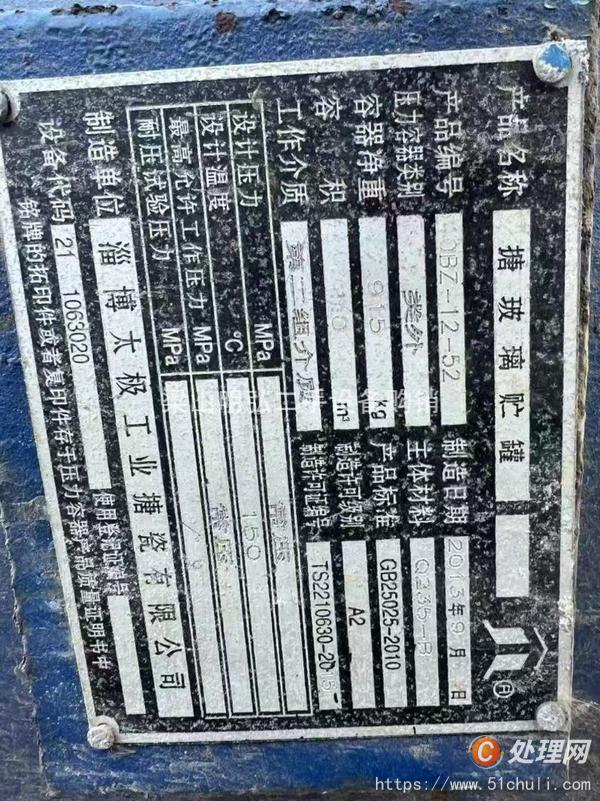 产品名称 搪玻璃贮罐
产品编号 0BZ-12-52 制造日期 2013年9月 日
压力容器类别 类外 主体材料 Q235-B
容器净重 915 kg 产品标准 GB25025-2010
容 积 m³ 制造许可级别 A2
工作介质 第二组介质 制造许可证编号 TS2210630-2015
设计压力 MPa 常压
设计温度 ℃ 150
最高允许工作压力 MPa 常压
耐压试验压力 MPa
制造单位 淄博太极工业搪瓷有限公司
设备代码 21 1063020 使用登记证编号
铭牌的拓印件或者复印件存于压力容器产品质量证明书中
C 处理网
https://www.51chuli.com